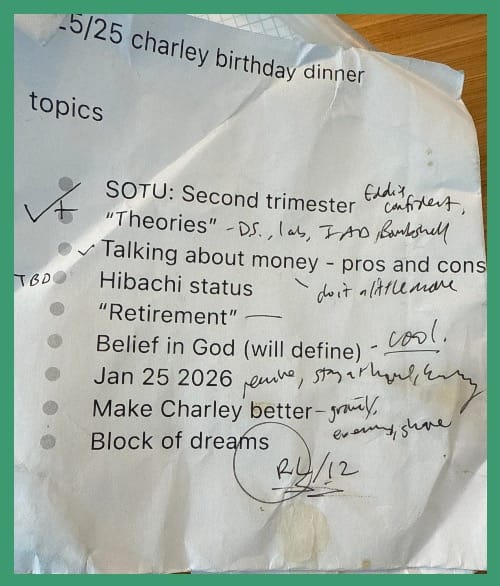 5/25 charley birthday dinner
topics
SOTU: Second trimester Eddie confident,
✓+ "Theories" - DS., lab, IAD, Bombshell
✓ Talking about money - pros and cons
do it a little more
TBD Hibachi status
"Retirement" —
Belief in God (will define) - cool.
Jan 25 2026
Make Charley better - gravity,
share
Block of dreams
/12